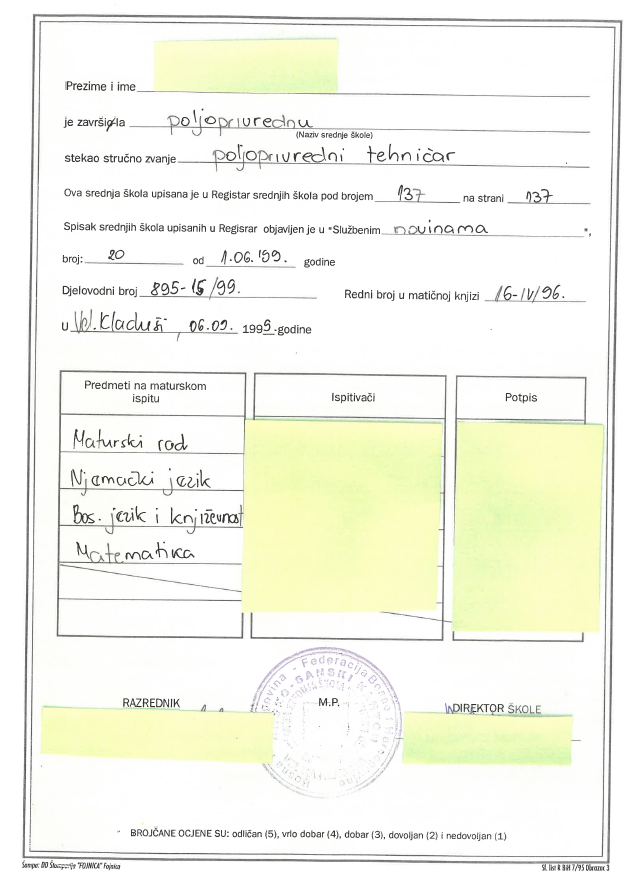 Prezime i ime
je završio/la poljoprivrednu
(Naziv srednje škole)
stekao stručno zvanje poljoprivredni tehničar
Ova srednja škola upisana je u Registar srednjih škola pod brojem 137 na strani 137
Spisak srednjih škola upisanih u Regisrar objavljen je u "Službenim novinama ",
broj: 20 od 1.06.'99. godine
Djelovodni broj 895-15/99. Redni broj u matičnoj knjizi 16-IV/96.
u Vel. Kladuši, 06.09. 1999. godine
Predmeti na maturskom ispitu Ispitivači Potpis
Maturski rad
Njemački jezik
Bos. jezik i književnost
Matematika
RAZREDNIK M.P. DIREKTOR ŠKOLE
BROJČANE OCJENE SU: odličan (5), vrlo dobar (4), dobar (3), dovoljan (2) i nedovoljan (1)
Štampa: DD Štamparija "FOJNICA" Fojnica Sl. list R BiH 7/95 Obrazac 3